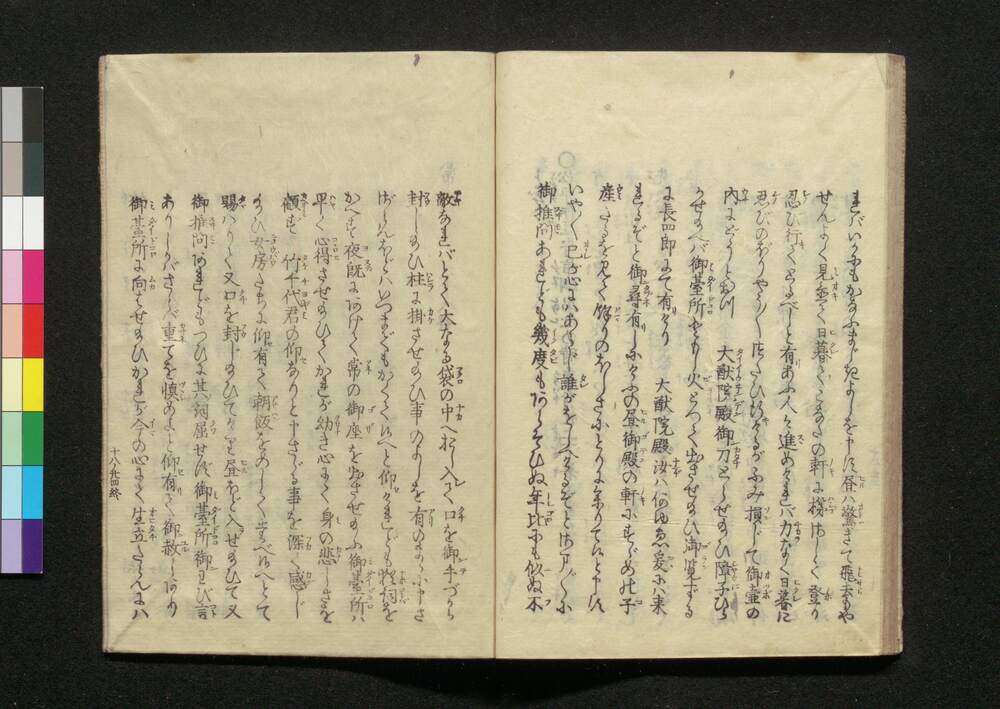 まいかにもかなふまじきよしを申す昼ハ驚きて飛去もや
せんよく見置て日暮てこなたの軒に梯はしして登り
忍び行くとるべしと有あふ人々進めけれバ力なく日暮に
忍びのぼりやう〳〵したひけるがふみ損じて御壷の
内にどうとおつ 大猷院殿御刀とらせ給ひ障子ひら
かせ給へバ御臺所ともし火とつて出させ給ひ御覧ずる
に長四郎にて有けり 大猷院殿汝ハ何ゆゑ爰にハ来
れるぞと御尋有しにけふの昼御殿の軒にすゞめの子
産たるを見て餘りのほしさにとりに参りて候と申す
いや〳〵己が心にハあらじ誰がをしへけるぞとはげしく
御推問あれども幾度もあらそひぬ年比にも似ぬ不
敵なれバとて大なる袋の中へおし入て口を御手づから
封じ給ひ柱に掛させ給ひ事のよしを有のまゝに申さ
ずんバいつまでもかくて候へと仰けれども詞を
かへず夜既にあけて常の御座を出させ給ふ御臺所ハ
早く心得させ給ひてかれが幼き心にて身の悲しさを
顧ず 竹千代君の仰なりと申さざる事を深く感じ
給ひ女房たちに仰有て朝飯をめしてたべ候へとて
賜ハりて又口を封じ給ひてけり昼ほど入せ給ひて又
御推問あれどもつひに其詞屈せず御臺所御わび言
ありしかバさらバ重てを慎めよと仰有て御赦しあり
御臺所に向はせ給ひかれが今の心にて生立たらんにハ
十八ノ廿四終